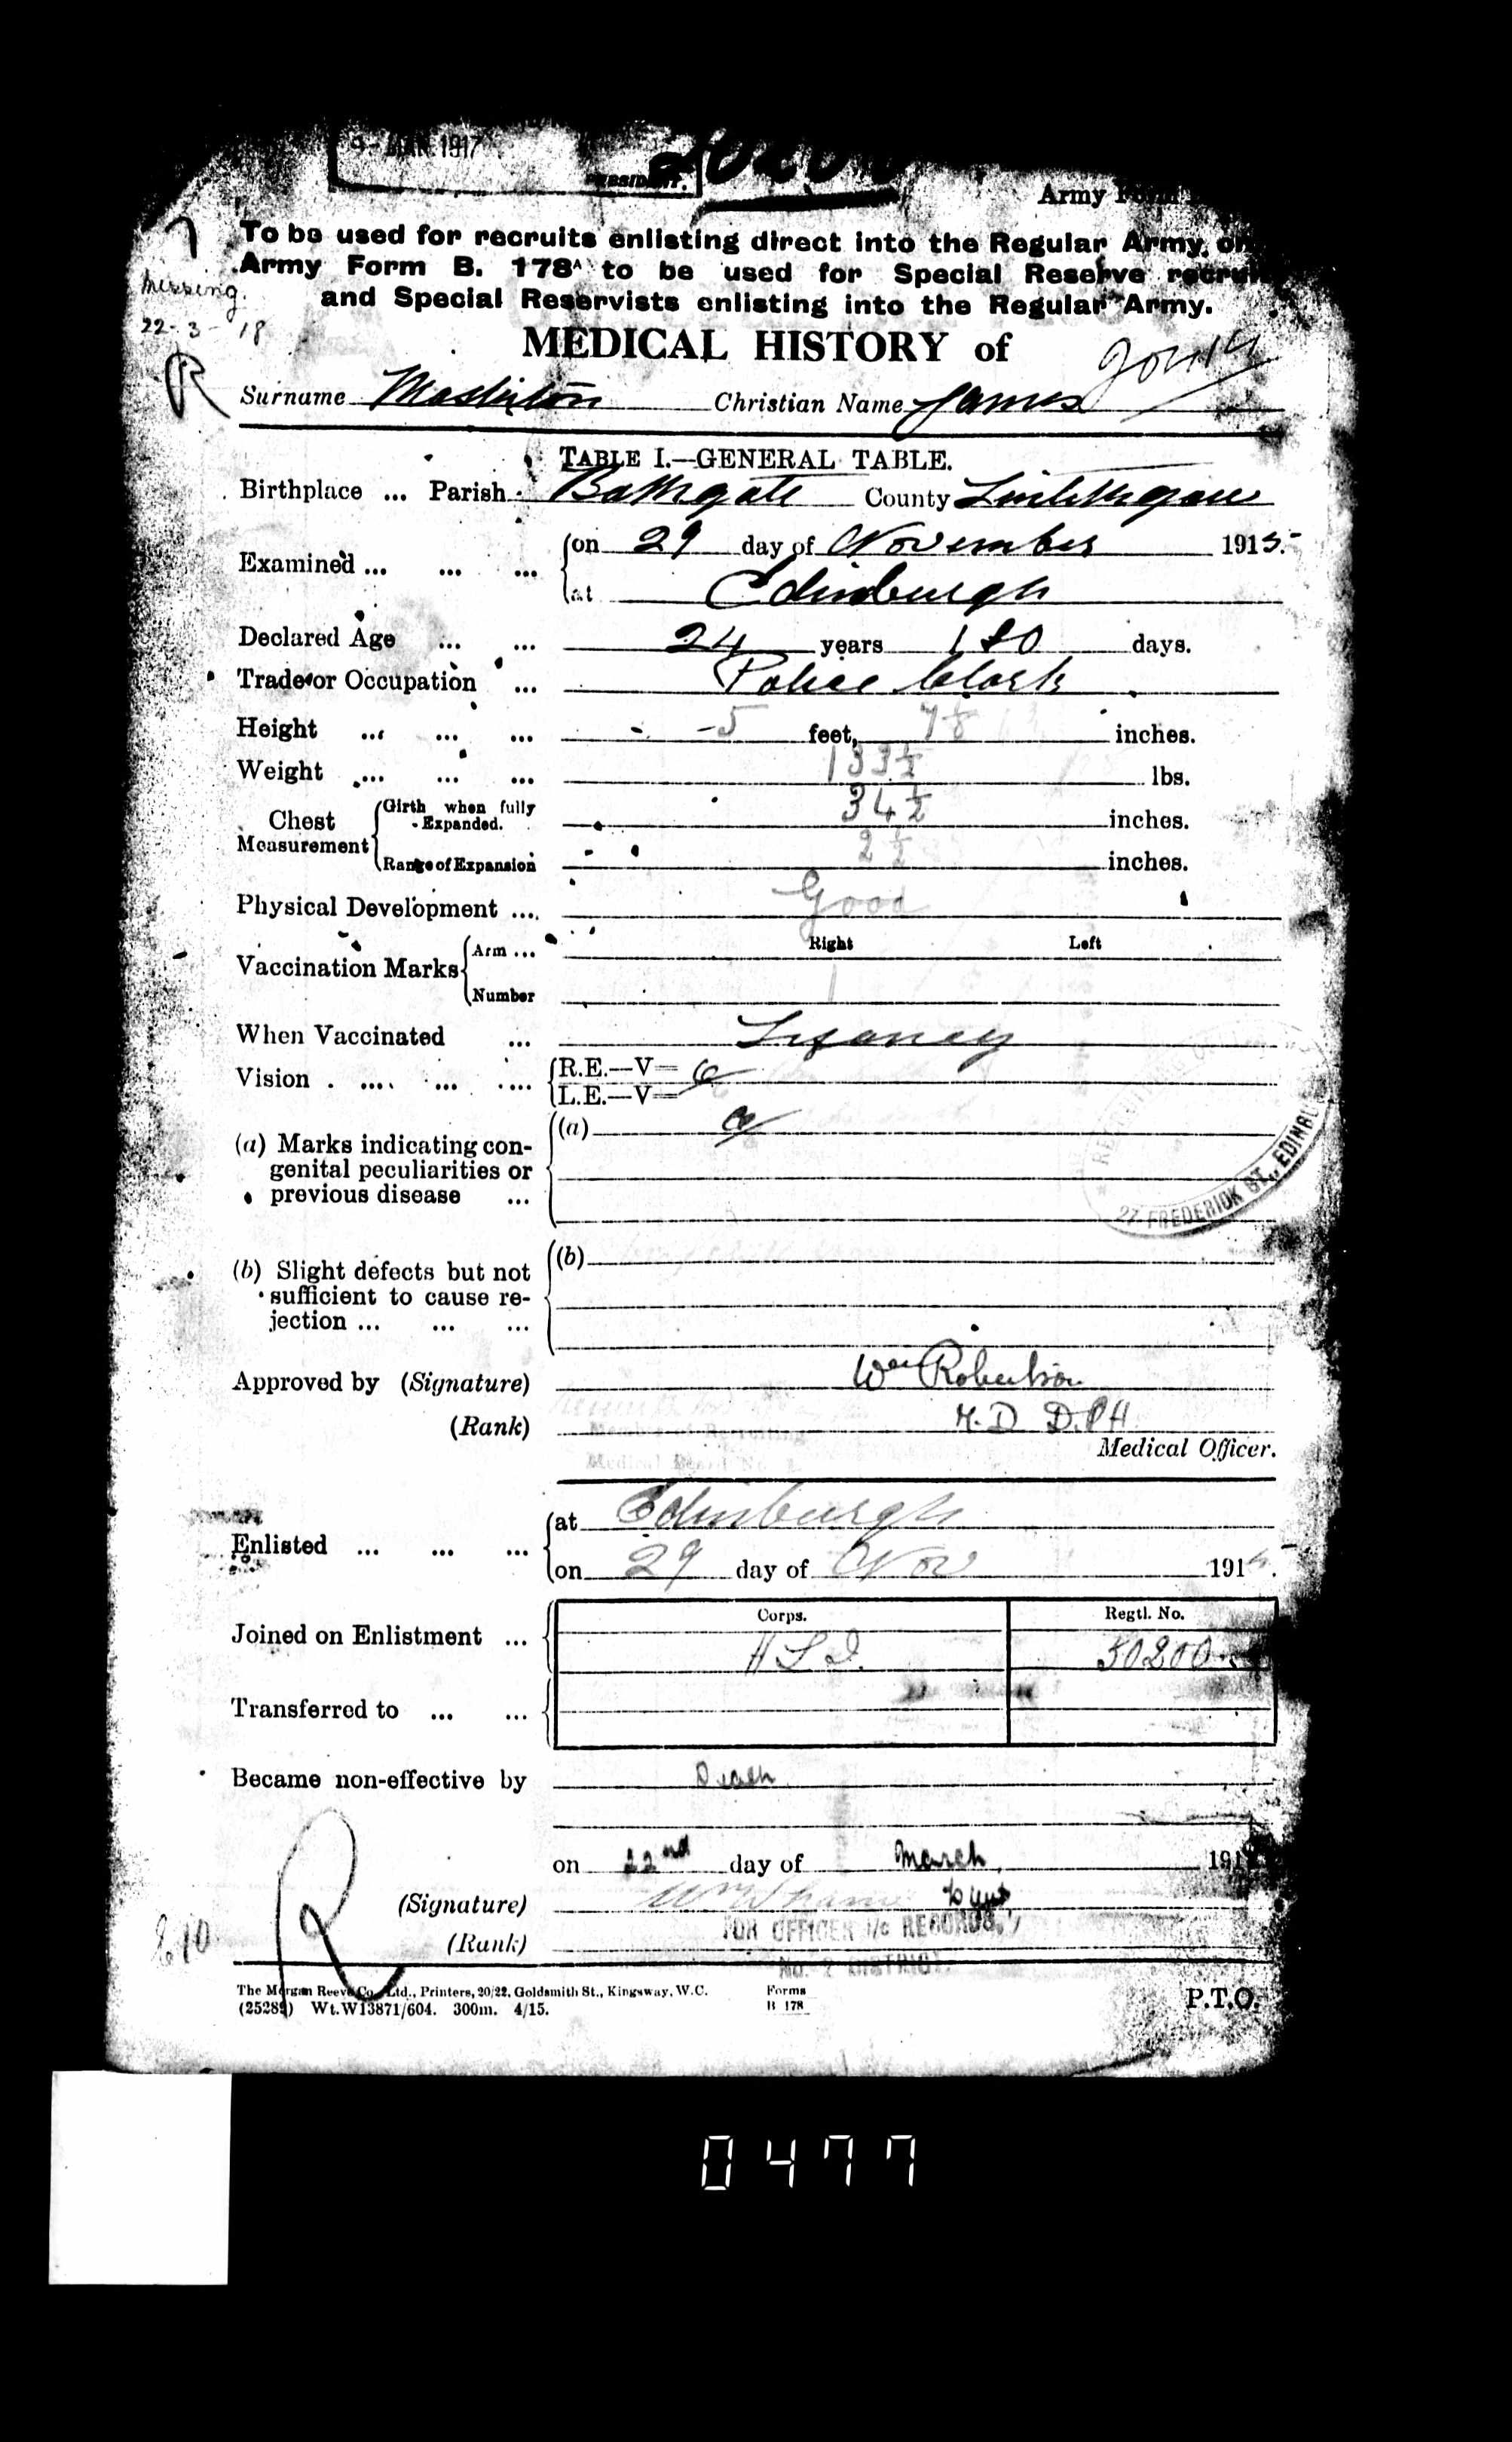 1917
PRESIDENT.
Army Form
To be used for recruits enlisting direct into the Regular Army, on
Army Form B. 178A to be used for Special Reserve recruit
and Special Reservists enlisting into the Regular Army.
Missing.
22-3-18
MEDICAL HISTORY of
R
Surname Masterton Christian Name James
TABLE I.—GENERAL TABLE.
Birthplace ... Parish Bathgate County Linlithgow
Examined ... ... ... on 29 day of November 1915.
at Edinburgh
Declared Age ... ... 24 years 180 days.
Trade or Occupation ... Police Clerk
Height ... ... ... 5 feet, 7 1/8 inches.
Weight ... ... ... 133 1/2 lbs.
Chest Measurement Girth when fully Expanded. 34 1/2 inches.
Range of Expansion 2 1/2 inches.
Physical Development ... Good
Right Left
Vaccination Marks Arm ...
Number 1
When Vaccinated ... Infancy
Vision ... ... ... R.E.—V= 6
L.E.—V=
(a) Marks indicating con-
genital peculiarities or
previous disease ...
(a)
RECRUITING
27 FREDERICK ST., EDINBU
(b) Slight defects but not
sufficient to cause re-
jection ... ... ...
(b)
Approved by (Signature) Wm Robertson
(Rank) M.D D.P.H
Medical Officer.
Enlisted ... ... ... at Edinburgh
on 29 day of Nov 1915.
Corps. Regtl. No.
Joined on Enlistment ... H L I. 50200
Transferred to ... ...
Became non-effective by Death
on 22nd day of March 191
(Signature)
FOR OFFICER i/c RECORDS,
(Rank)
No. 2 DISTRICT.
R
The Morgan Reeve Co., Ltd., Printers, 20/22, Goldsmith St., Kingsway, W.C.
(25289) Wt.W13871/604. 300m. 4/15.
Forms
B 178
P.T.O.
0477